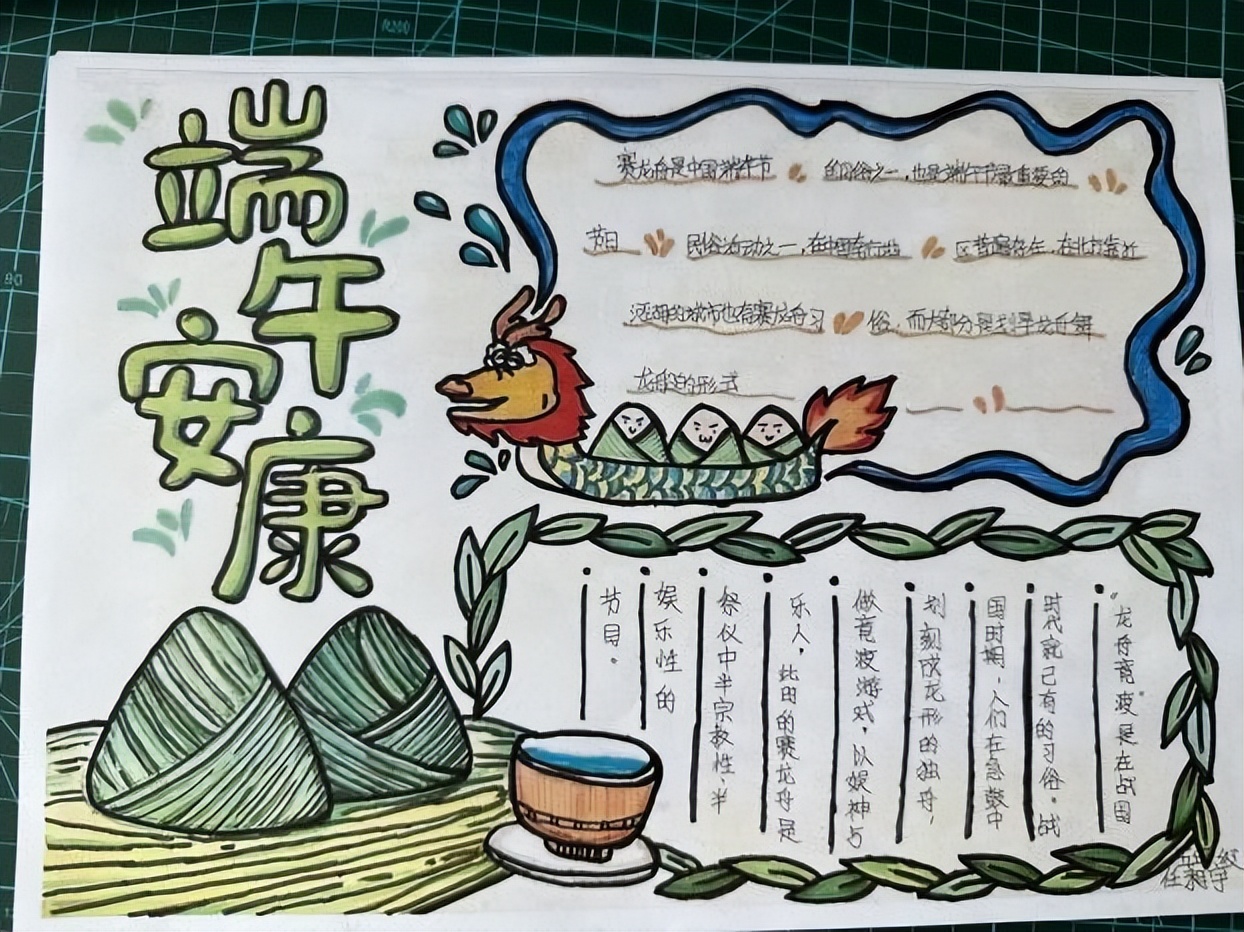 端午安康
赛龙舟是中国端午节 的习俗之一,也是端午节最重要的
节日 民俗活动之一,在中国南方地 区普遍存在,在北方靠近
河湖的城市也有赛龙舟习 俗,而大部分是划旱龙舟舞
龙船的形式
"龙舟竞渡"是在战国
时代就已有的习俗。战
国时期,人们在急鼓中
划刻成龙形的独舟,
做竞渡游戏,以娱神与
乐人,此时的赛龙舟是
祭仪中半宗教性、半
娱乐性的
节目。